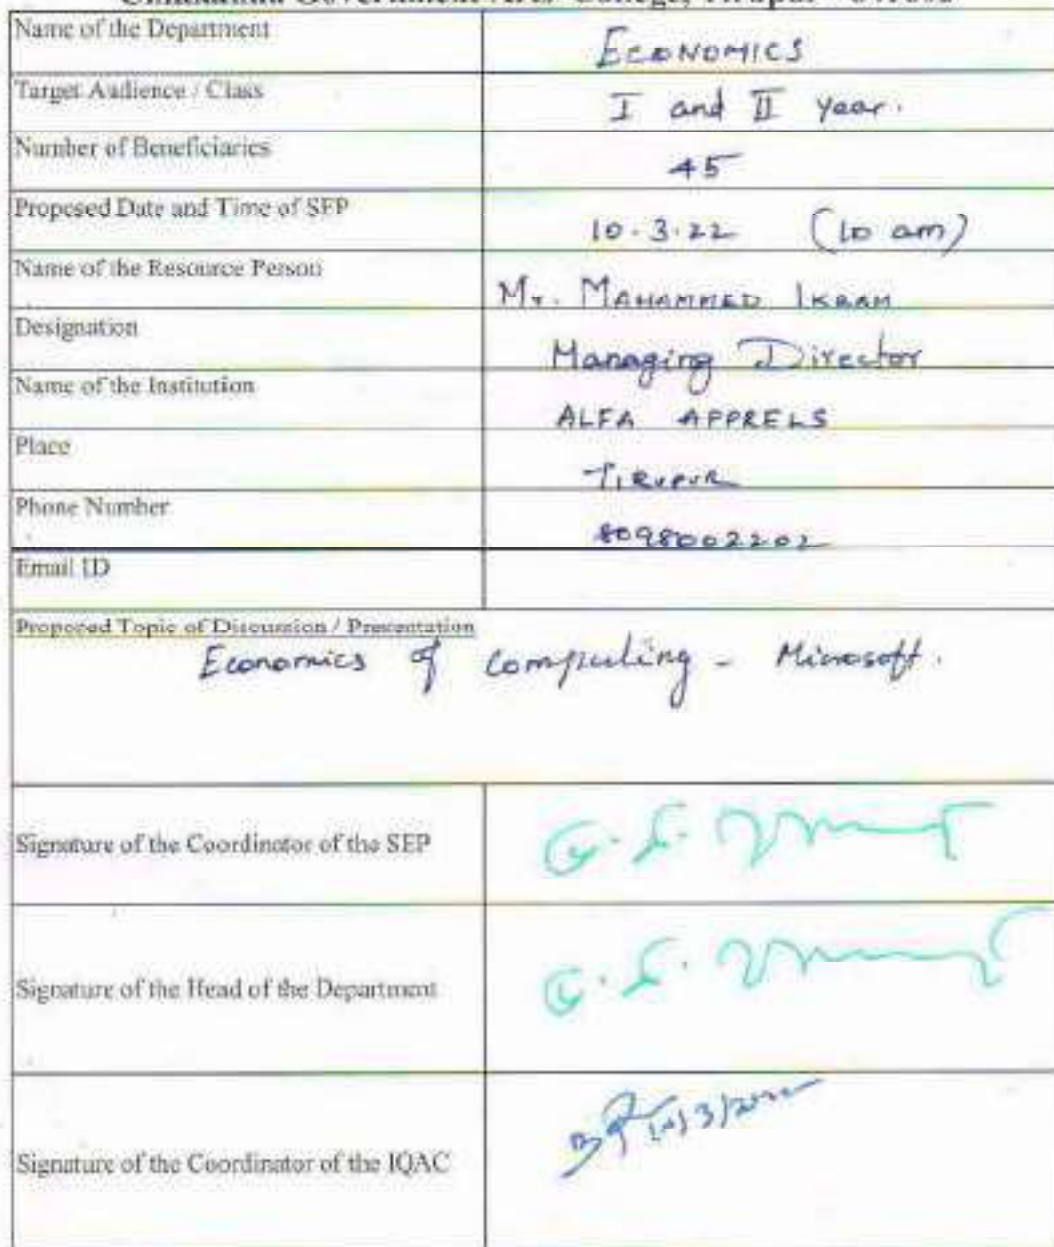 Government Arts College,
Name of the Department
ECONOMICS
Target Audience / Class
I and II year.
Number of Beneficiaries
45
Proposed Date and Time of SEP
10.3.22 (10 am)
Name of the Resource Person
Mr. MAHAMMED IKRAM
Designation
Managing Director
Name of the Institution
ALFA APPRELS
Place
TIRUPUR
Phone Number
8098002202
Email ID
Proposed Topic of Discussion / Presentation
Economics of Computing - Microsoft.
Signature of the Coordinator of the SEP
Signature of the Head of the Department
Signature of the Coordinator of the IQAC